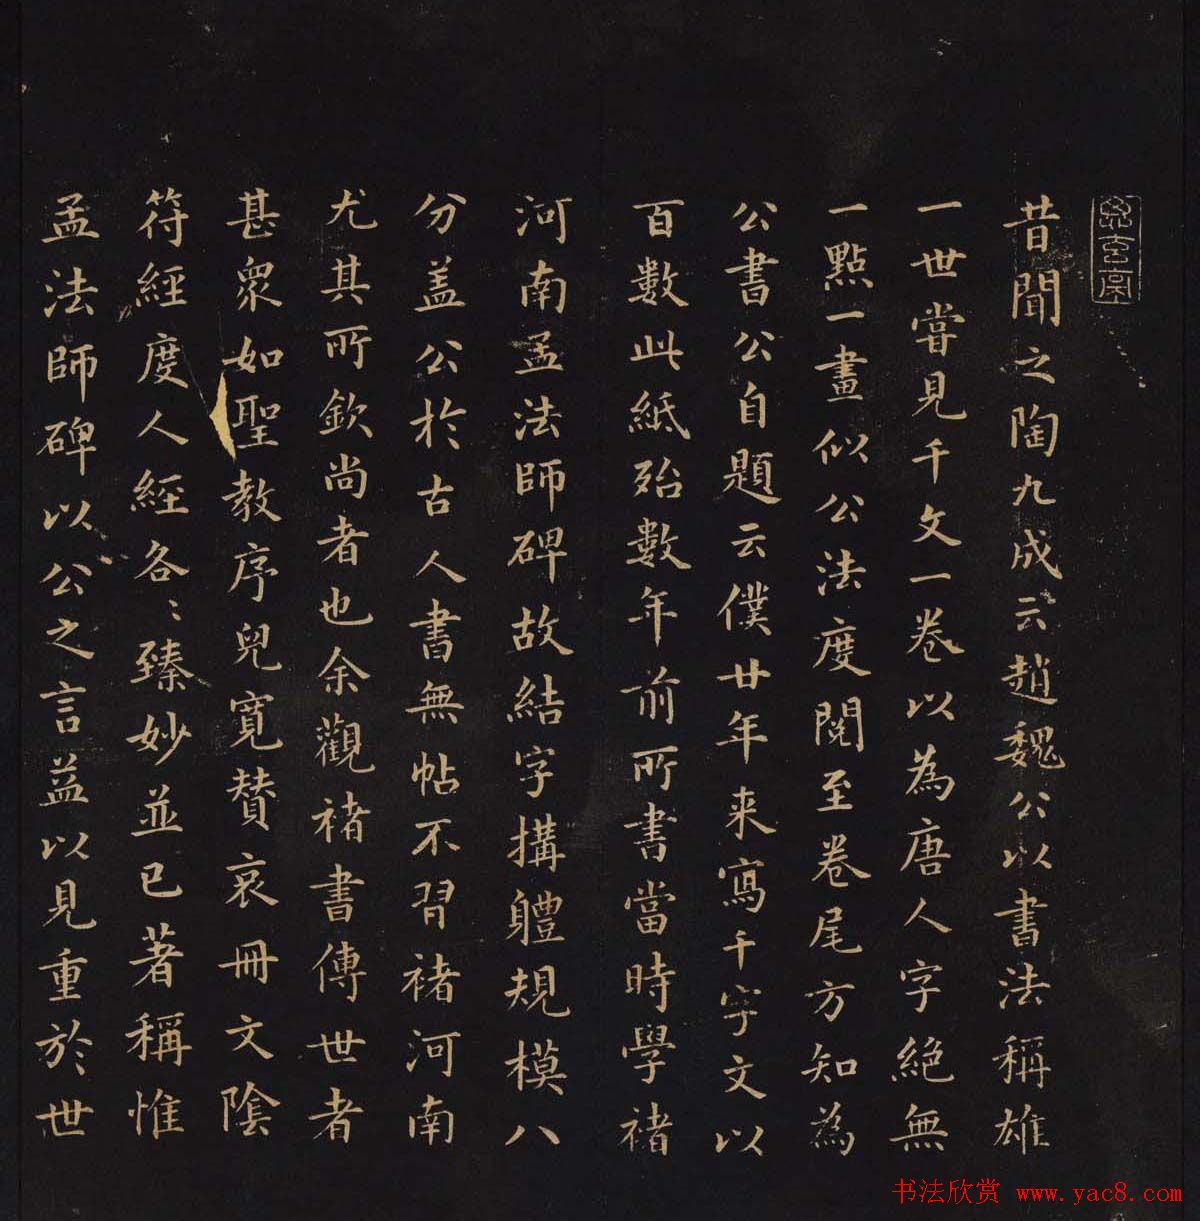 昔聞之陶九成云趙魏公以書法稱雄
一世嘗見千文一卷以為唐人字絕無
一點一畫似公法度閱至卷尾方知為
公書公自題云僕廿年来寫千字文以
百數此紙殆數年前所書當時學褚
河南孟法師碑故結字搆軆規模八
分盖公於古人書無帖不習褚河南
尤其所欽尚者也余觀褚書傳世者
甚衆如聖教序兒寬贊哀冊文陰
符經度人經各〻臻妙並已著稱惟
孟法師碑以公之言益以見重於世
书法欣赏 www.yac8.com